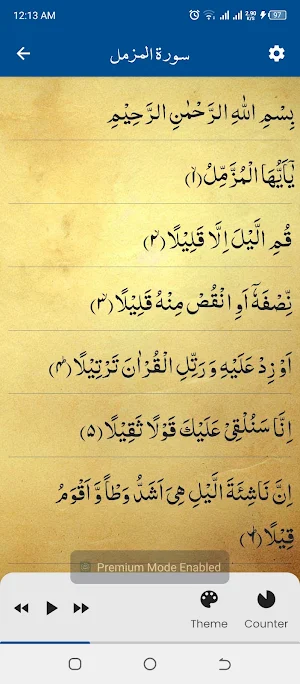 12:13 AM 2.90 K/s 97
سورة المزمل
بِسْمِ اللهِ الرَّحْمٰنِ الرَّحِيْمِ
يٰۤاَيُّهَا الْمُزَّمِّلُ(۱)
قُمِ الَّيْلَ اِلَّا قَلِيْلًا(۲)
نِّصْفَهٗۤ اَوِ انْقُصْ مِنْهُ قَلِيْلًا(۳)
اَوْ زِدْ عَلَيْهِ وَ رَتِّلِ الْقُرْاٰنَ تَرْتِيْلًا(۴)
اِنَّا سَنُلْقِيْ عَلَيْكَ قَوْلًا ثَقِيْلًا(۵)
اِنَّ نَاشِئَةَ الَّيْلِ هِيَ اَشَدُّ وَطْاً وَّ اَقْوَمُ
قِيْلًا(۶)
Premium Mode Enabled
Theme Counter